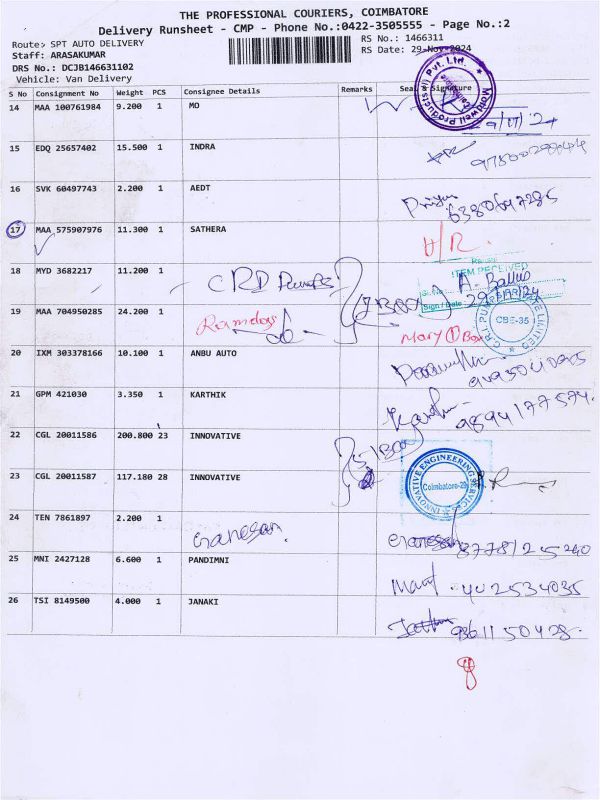 THE PROFESSIONAL COURIERS, COIMBATORE
Delivery Runsheet - CMP - Phone No.:0422-3505555 - Page No.:2
Route: SPT AUTO DELIVERY
Staff: ARASAKUMAR
DRS No.: DCJB146631102
Vehicle: Van Delivery
RS No.: 1466311
RS Date: 29-Nov-2024
S No Consignment No Weight PCS Consignee Details Remarks Seal & Signature
14 MAA 100761984 9.200 1 MO
15 EDQ 25657402 15.500 1 INDRA
16 SVK 60497743 2.200 1 AEDT
6380647285
17 MAA 575907976 11.300 1 SATHERA
H/R.
18 MYD 3682217 11.200 1 CRD
ITEM RECEIVED
Sign / Date
19 MAA 704950285 24.200 1 Ramdog
Mary 1 Box
CBE-35
20 IXM 303378166 10.100 1 ANBU AUTO
21 GPM 421030 3.350 1 KARTHIK
9894177574
22 CGL 20011586 200.800 23 INNOVATIVE
51 Box
23 CGL 20011587 117.180 28 INNOVATIVE
INNOVATIVE ENGINEERING SERVICE
Coimbatore-29
24 TEN 7861897 2.200 1 Ganesan
Ganesan 8778125240
25 MNI 2427128 6.600 1 PANDIMNI
26 TSI 8149500 4.000 1 JANAKI
9361150428